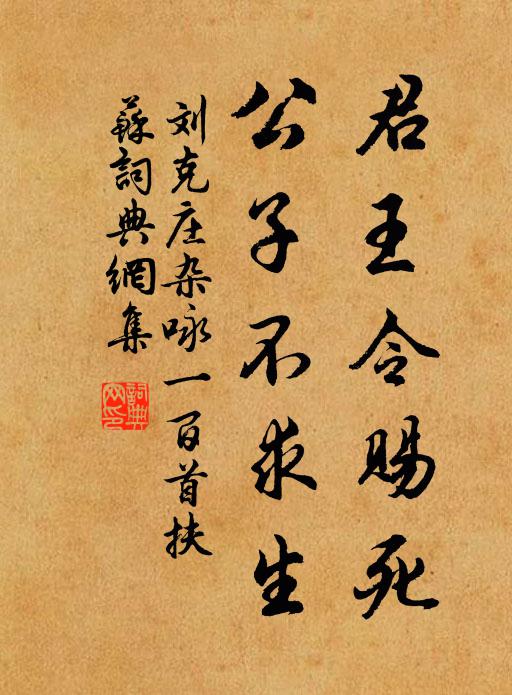 君王令赐死
公子不求生
刘克庄杂咏一百首扶
蘇詞典網集
詞典网印